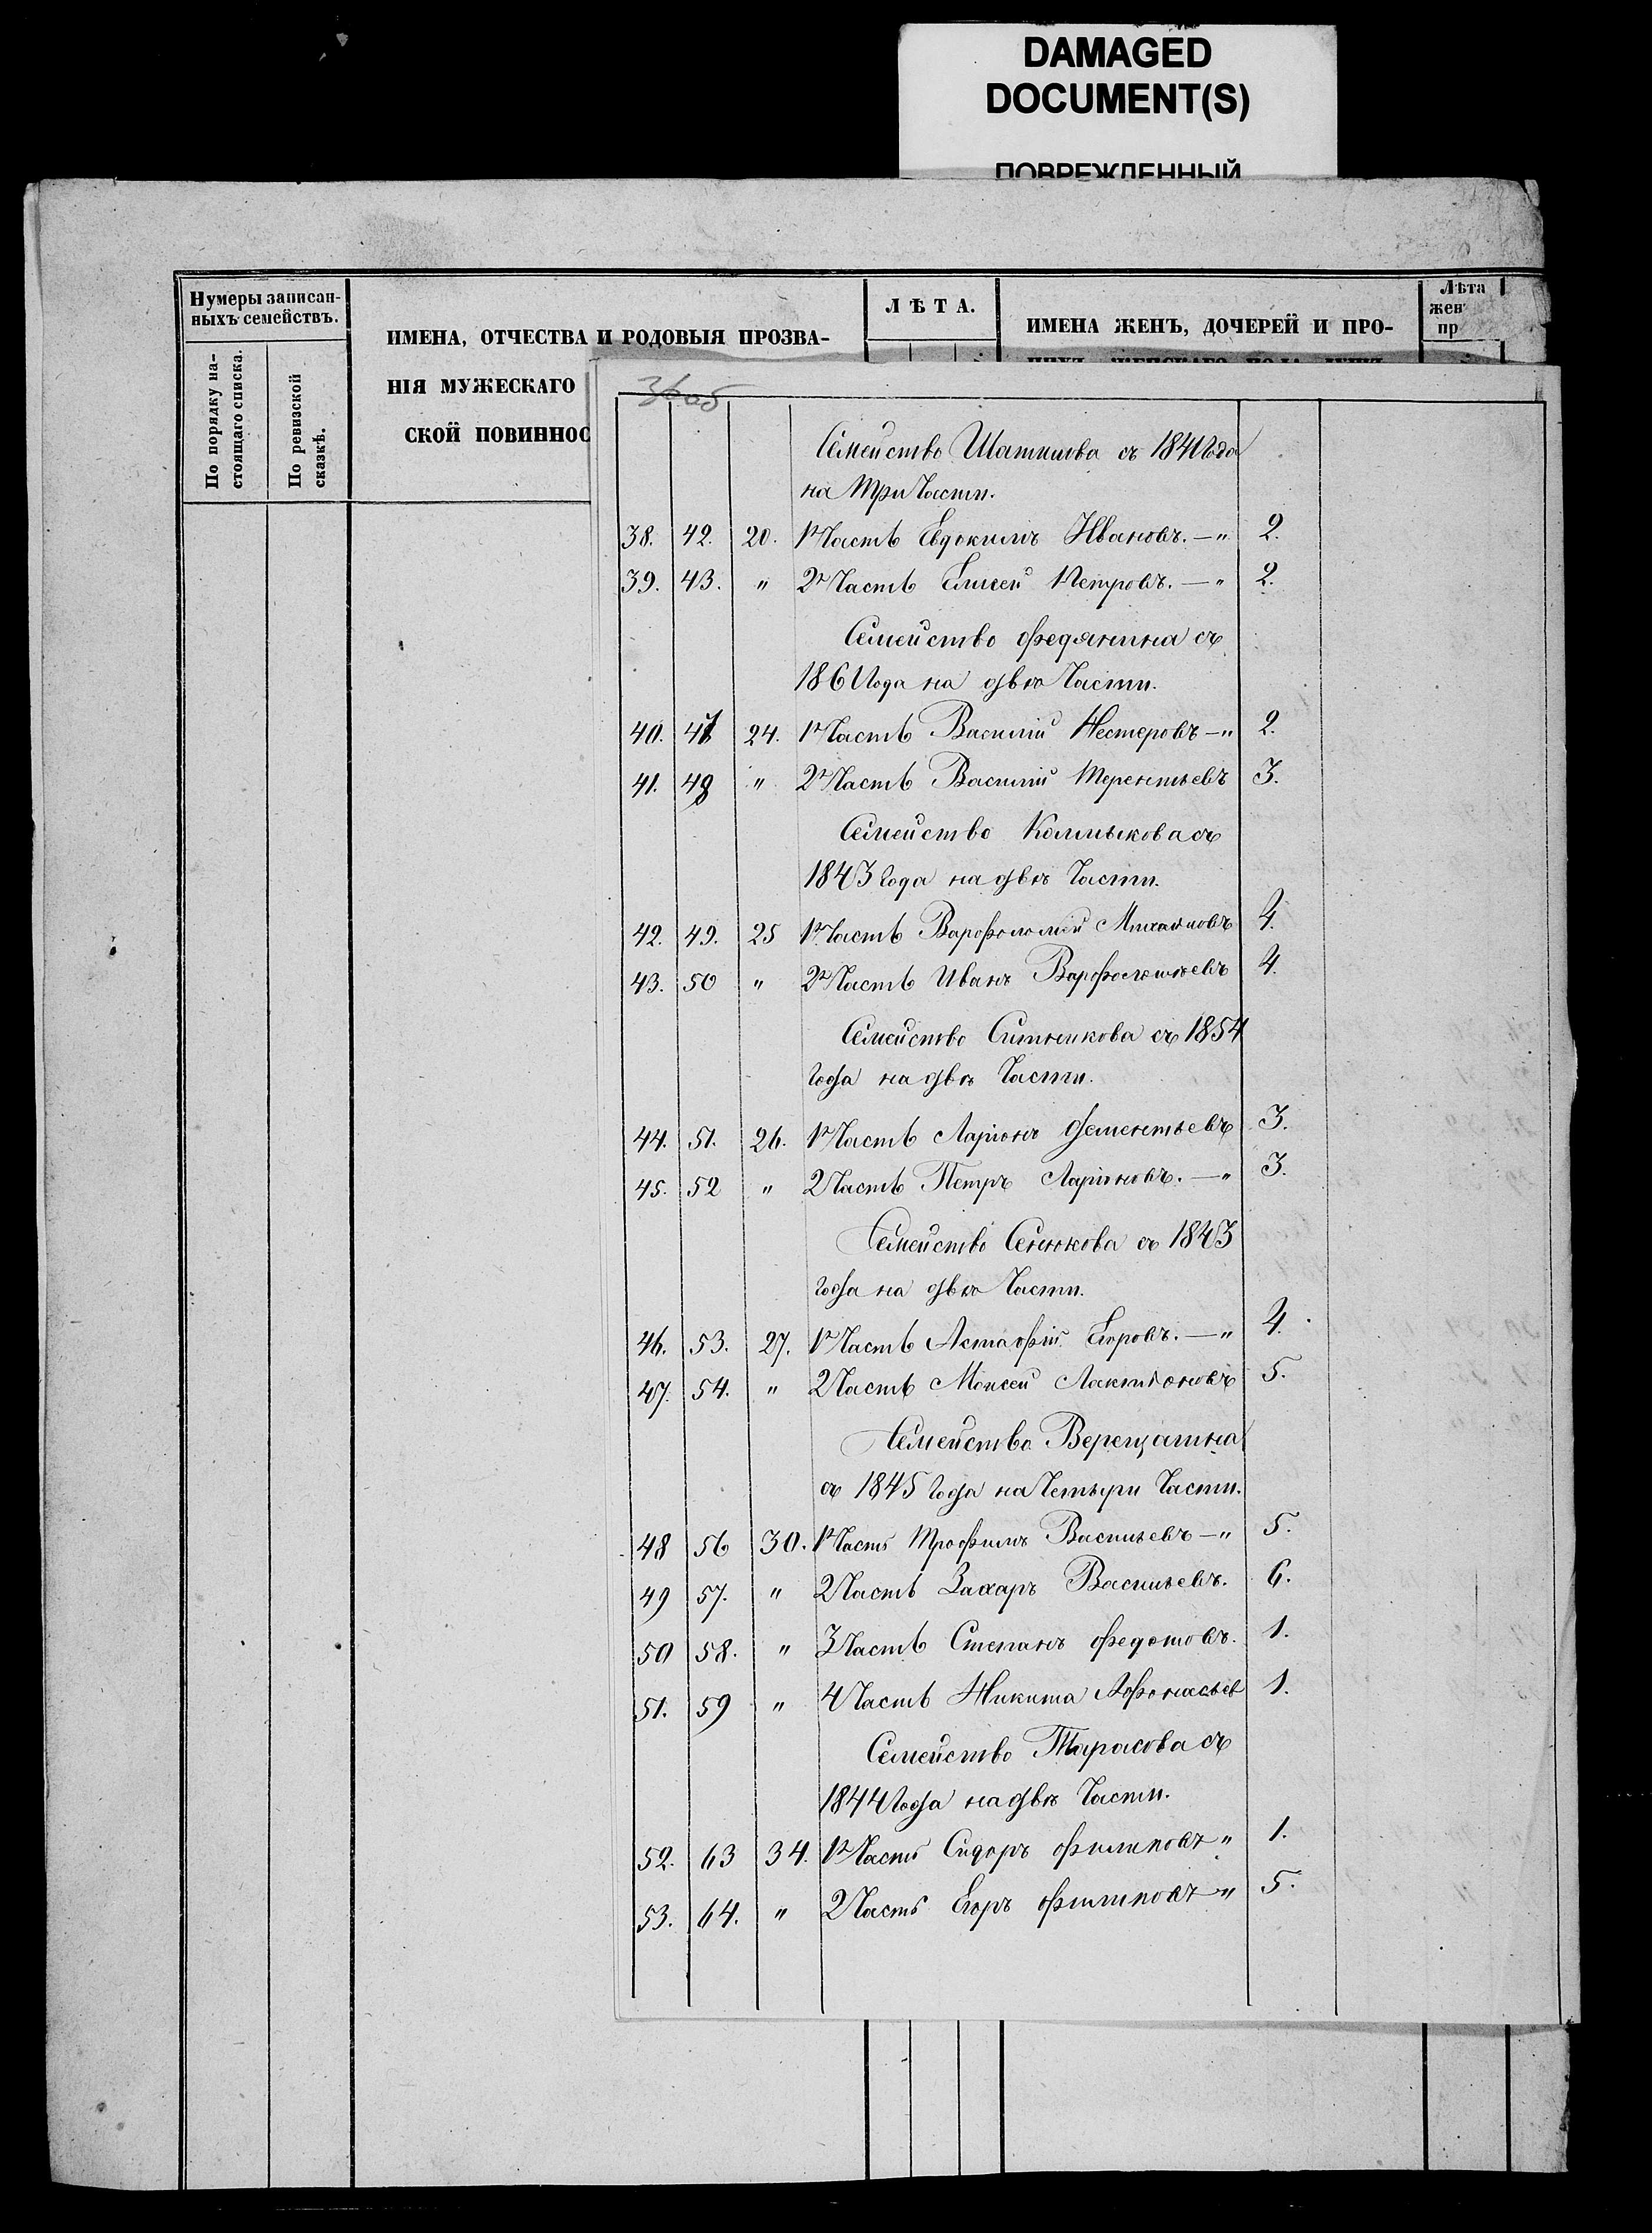 DAMAGED
DOCUMENT(S)
ПОВРЕЖДЕННЫЙ
Нумеры записан-
ныхъ семействъ.
По порядку на-
стоящаго списка.
По ревизской
сказкѣ.
ИМЕНА, ОТЧЕСТВА И РОДОВЫЯ ПРОЗВА-
НІЯ МУЖЕСКАГО
СКОЙ ПОВИННОС
ЛѢТА.
ИМЕНА ЖЕНЪ, ДОЧЕРЕЙ И ПРО-
Лѣта
жен
пр
36об
Семейство съ 1841 Года
на Три Части.
38. 42. 20. 1я Часть Евдокимъ Ивановъ. — " 2.
39. 43. " 2я Часть Елисей Петровъ. — " 2.
Семейство Федянина съ
1861 Года на двѣ Части.
40. 47 24. 1я Часть Василій Нестеровъ — " 2.
41. 48 " 2я Часть Василій Терентьевъ 3.
Семейство Колмыкова съ
1843 Года на двѣ Части.
42. 49. 25 1я Часть Варфоломей Михайловъ 4.
43. 50 " 2я Часть Иванъ Варфоломѣевъ 4.
Семейство Ситникова съ 1854
Года на двѣ Части.
44. 51. 26. 1я Часть Ларіонъ Дементьевъ 3.
45. 52 " 2 Часть Петръ Ларіоновъ. — " 3.
Семейство Сенюкова съ 1843
Года на двѣ Части.
46. 53. 27. 1я Часть Астафій Егоровъ. — " 4.
47. 54. " 2 Часть Моисей Лактіоновъ 5.
Семейство Верещагина
съ 1845 Года на Четыри Части.
48 56 30. 1я Часть Трофимъ Васильевъ — " 5.
49 57. " 2 Часть Захаръ Васильевъ. 6.
50 58. " 3 Часть Степанъ Федотовъ. 1.
51. 59 " 4 Часть Никита Афонасьев 1.
Семейство Тарасова съ
1844 Года на двѣ Части.
52. 63 34. 1я Часть Сидоръ Филиповъ " 1.
53. 64. " 2 Часть Егоръ Филиповъ " 5.